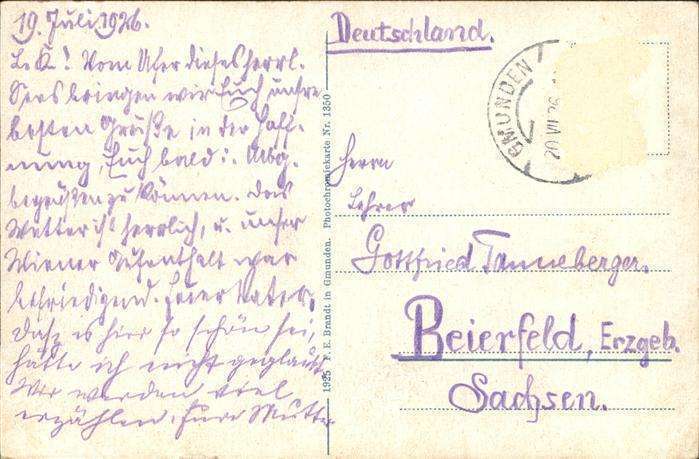 19. Juli 1926.
L. K.! Vom Ufer dieses herrl.
Sees bringen wir Euch unsre
besten Grüße in der Hoff-
nung, Euch bald i.
begrüßen zu können. Das
Wetter ist herrlich, u. unser
Wiener Aufenthalt war
befriedigend. Euer Vater.
Daß es hier so schön sei,
hätte ich nicht geglaubt.
Wir werden viel
erzählen. Eure Mutter
1925 F. E. Brandt in Gmunden. Photochromiekarte Nr. 1350
Deutschland.
GMUNDEN
20 VII 26
Herrn
Lehrer
Gottfried Tanneberger.
Beierfeld, Erzgeb.
Sachsen.